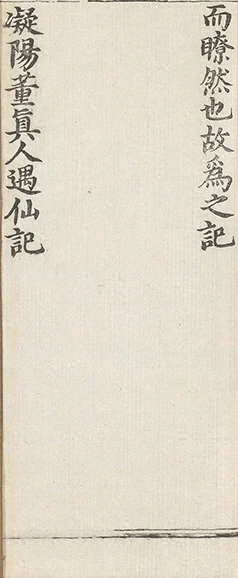 而瞭然也故爲之記
凝陽董眞人遇仙記